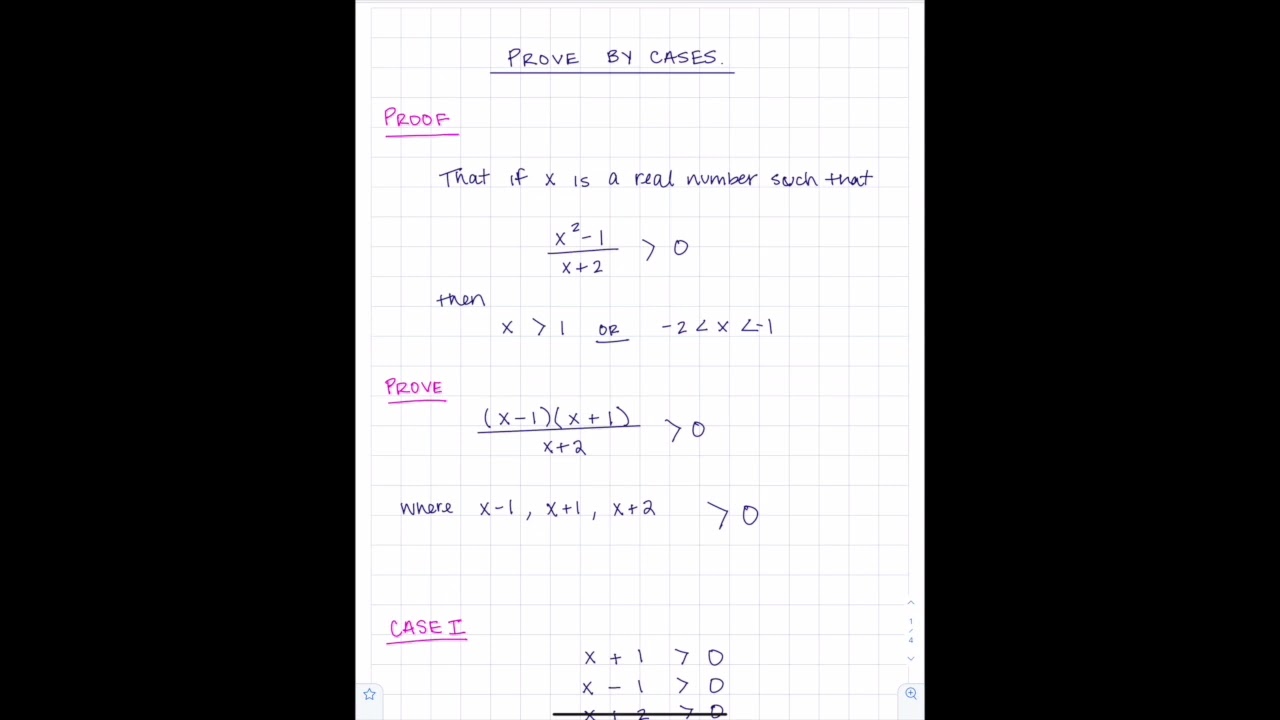 PROVE BY CASES.
PROOF
That if x is a real number such that
x² - 1
x + 2
> 0
then
x > 1 OR -2 < x < -1
PROVE
(x - 1)(x + 1)
x + 2
> 0
where x - 1 , x + 1 , x + 2 > 0
CASE I
x + 1 > 0
x - 1 > 0
x + 2 > 0
1
/
4